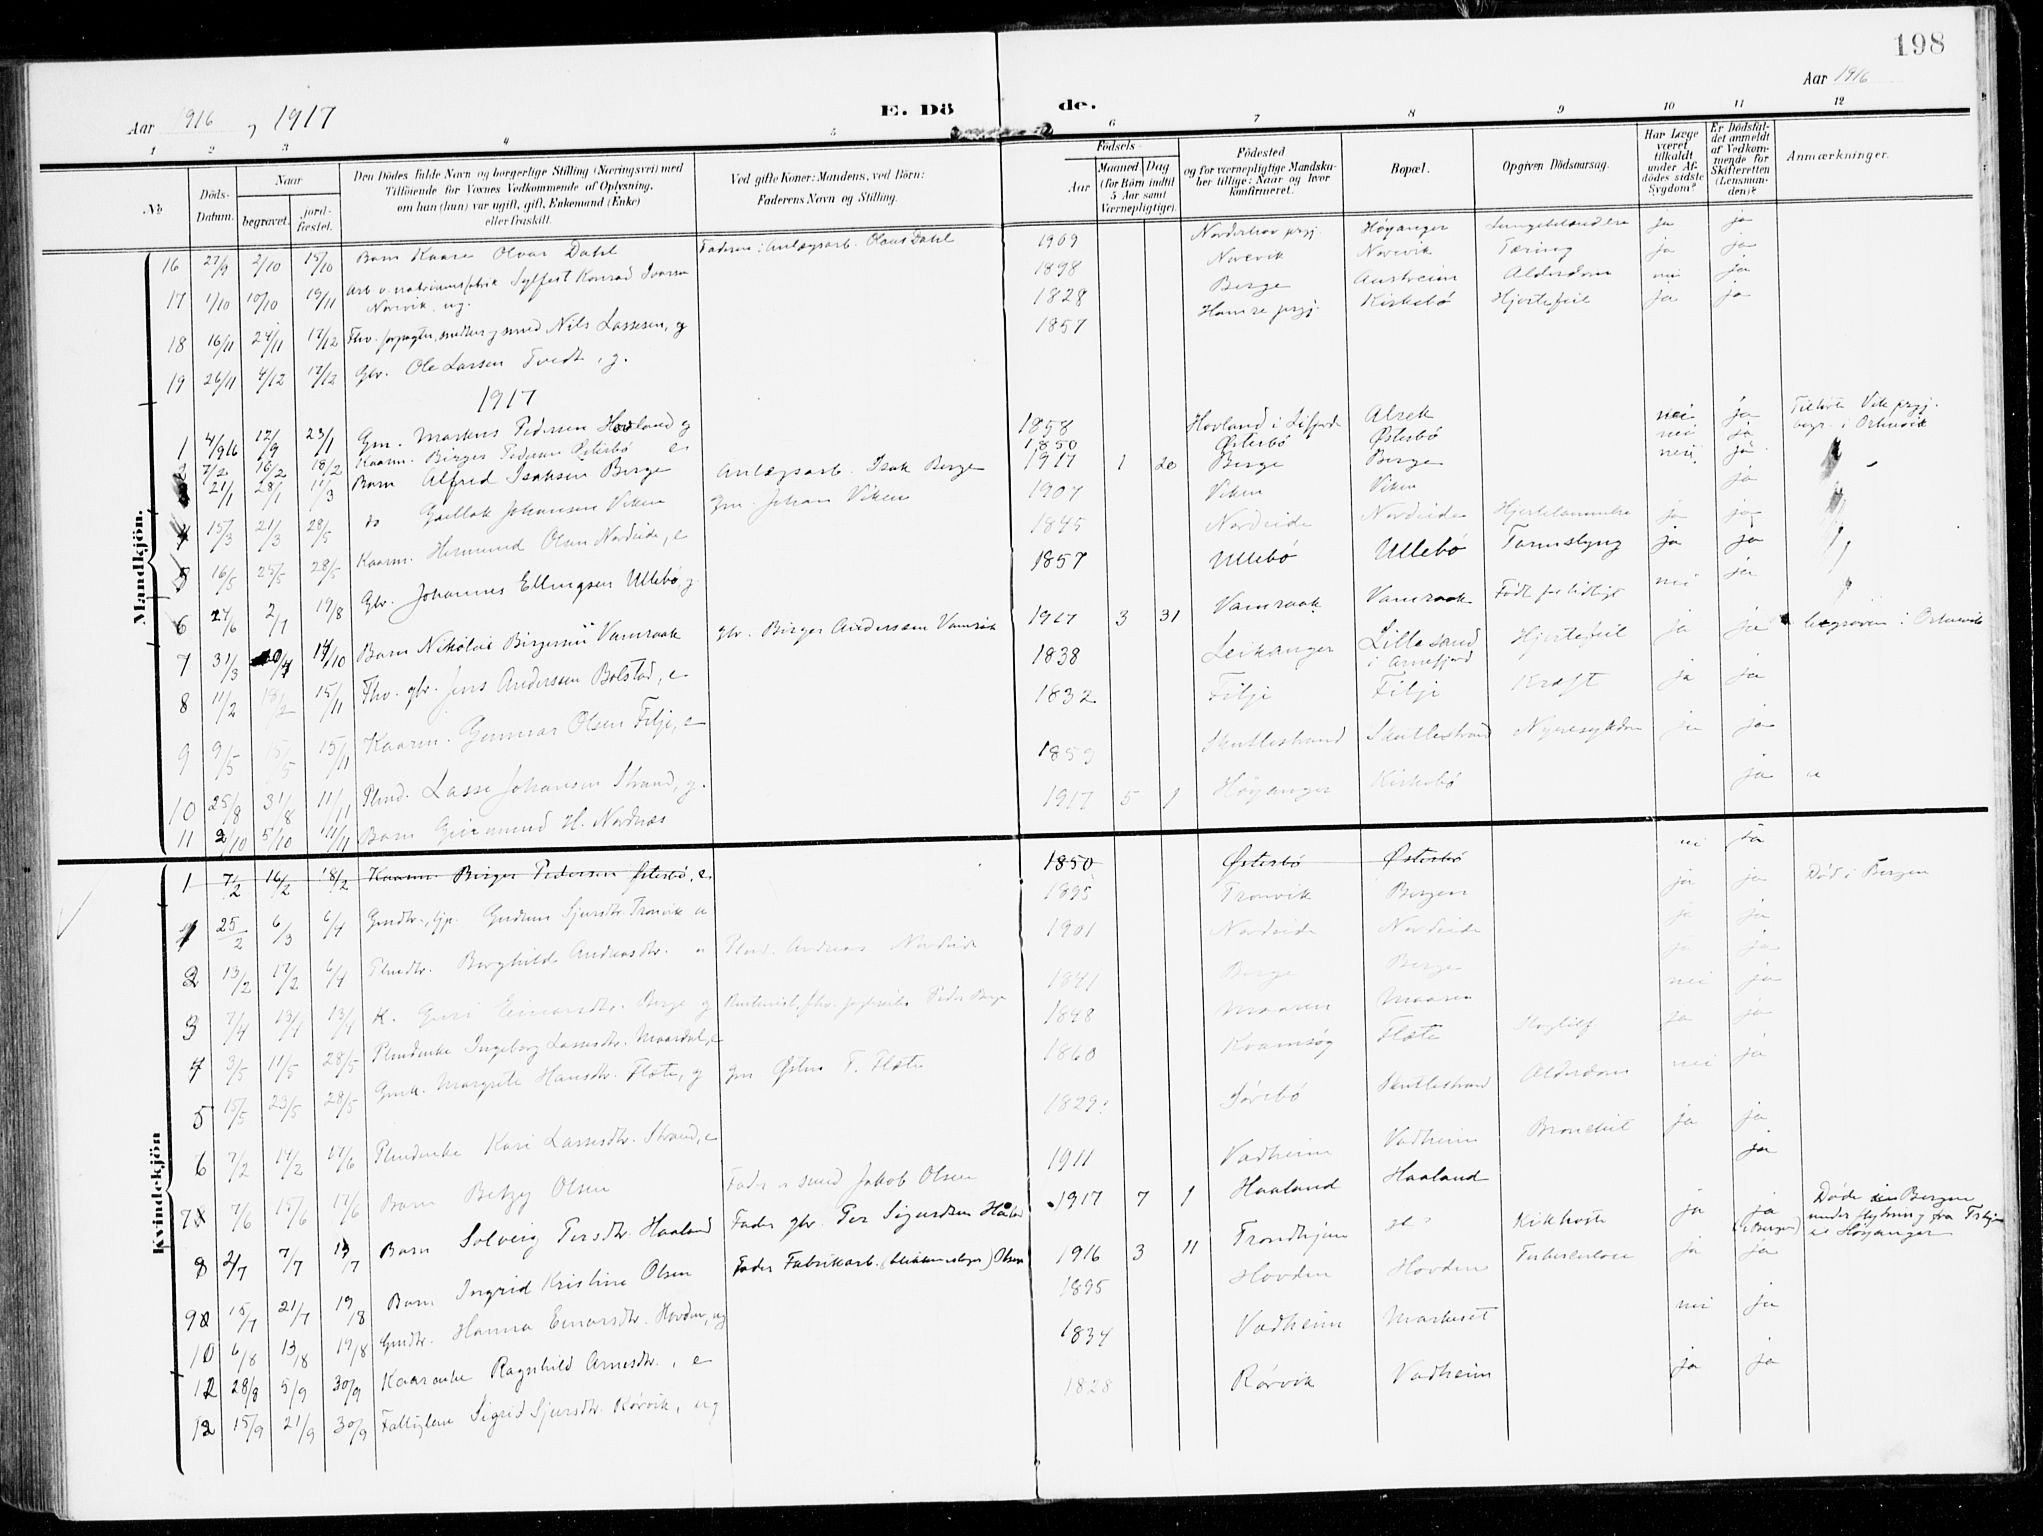 198
Aar 1916 og 1917
E. Dö de.
Aar 1916
1 2 3 4 5 6 7 8 9 10 11 12
No.
Döds-Datum.
Naar
begravet.
jord-fæstet.
Den Dödes fulde Navn og borgerlige Stilling (Næringsvei) med Tilföiende for Voxnes Vedkommende af Oplysning, om han (hun) var ugift, gift, Enkemand (Enke) eller fraskilt.
Ved gifte Koner: Mandens, ved Börn: Faderens Navn og Stilling.
Födsels-
Aar
Maaned.
Dag
(for Börn indtil 5 Aar samt Værnepligtige).
Födested og for værnepligtige Mandskaber tillige: Naar og hvor Konfirmeret.
Bopæl.
Opgiven Dödsaarsag.
Har Læge været tilkaldt under Afdödes sidste Sygdom?
Er Dödsfaldet anmeldt af Vedkommende for Skifteretten (Lensmanden)?
Anmærkninger.
Mandkjön.
16 27/9 2/10 15/10 Barn Kaare Olvar Dahl Faderen: Anlægsarb. Olaus Dahl 1909 Norderhov prgj. Høyanger ja ja
17 1/10 10/10 19/11 Sylfest Konrad Ivarsen Norevik, ug. 1898 Norevik Norevik Tæring ja ja
18 16/11 24/11 17/12 Fhv. forpagter, snedker og smed Nils Lassesen, g 1828 Berge Austreim Alderdom nei ja
19 26/11 4/12 17/12 Gbr. Ole Lassen Tvedt, g. 1857 Hamre prgj. Kirkebø Hjertefeil ja ja
1917
1 4/9 16 12/9 23/1 Gm. Markus Pedersen Hovland g 1858 Hovland i Lifjord Alrek nei ja Tilhørte Vik prgj. begr. i Ortnevik
2 7/2 16/2 18/2 Kaarm. Birger Pedersen Østerbø e 1850 Østerbø Østerbø nei ja
21/1 28/1 11/3 Barn Alfred Isaksen Berge Anlægsarb. Isak Berge 1917 1 20 Berge Berge nei ja
4 15/3 21/3 28/5 do Johansen Viken Gm. Johan Viken 1907 Viken Viken ja
5 16/5 25/5 28/5 Kaarm. Hermund Olsen Nordeide, e 1845 Nordeide Nordeide ja ja
6 27/6 2/7 19/8 Gbr. Johannes Ellingsen Ullebø g. 1857 Ullebø Ullebø Tarmslyng ja ja
7 31/3 14/10 Barn Nikolai Birgersen Vamraak gbr. Birger Anderssen Vamraak 1917 3 31 Vamraak Vamraak Født for tidligt nei ja
8 11/2 18/2 15/11 Fhv. gbr. Jens Anderssen Bolstad, e 1838 Leikanger Lillesand i Arnefjord Hjertefeil ja ja begraven i Ortnevik
9 9/5 15/5 15/11 Kaarm. Gunnar Olsen Filje, e 1832 Filje Filje Kræft ja ja
10 25/8 31/8 11/11 Plmd. Lasse Johansen Strand, g. 1859 Skutlestrand Skutlestrand Nyresygdom ja ja
11 2/10 5/10 11/11 Barn Geirmund H. Nordnæs 1917 5 1 Høyanger Kirkebø ja
Kvindekjön
1 7/2 16/2 18/2 Kaarm Birger Pedersen Østerbø, e. 1850 Østerbø Østerbø nei ja
1 25/2 6/3 6/4 Sjursdtr. Tronvik u 1895 Tronvik Bergen ja ja Død i Bergen
2 13/2 17/2 6/4 Plmdtr. Borghild Andreasdtr. u Plmd. Andreas Nordeide 1901 Nordeide Nordeide ja ja
3 7/4 13/4 13/4 K. Guri Einarsdtr. Berge g Peder Berge 1841 Berge Berge ja ja
4 3/5 11/5 28/5 Plmdenke Ingeborg Lassesdtr. Maardal, e 1848 Maaren Maaren nei ja
5 15/5 23/5 28/5 Gmk. Margrete Hansdtr. Flæte, g gm Østen T. Flæte 1860 Kvamsøy Flæte Slagtilf ja ja
6 7/2 14/2 17/6 Plmdenke Kari Lassesdtr. Strand, e 1829 Sørebø Skutlestrand Alderdom nei ja
7 7/6 15/6 17/6 Barn Betzy Olsen Fader: smed Jakob Olsen 1911 Vadheim Vadheim Bronchit ja ja
8 2/7 7/7 Barn Solveig Persdtr. Haaland Fader gbr. Per Sigurdsen Haaland 1917 7 1 Haaland Haaland ja
9 15/7 21/7 19/8 Barn Ingrid Kristine Olsen Fader Fabrikarb. (blikkenslager) Olsen 1916 3 11 Trondhjem Kikhoste ja ja (i Bergen) Døde i Bergen under flytning fra Trhjem til Høyanger
10 6/8 13/8 19/8 Gmdtr. Hanna Einarsdtr. Hovden, ug 1895 Hovden Hovden Tuberculose ja ja
12 28/8 5/9 30/9 Kaarenke Ragnhild Arnesdtr., e 1834 Vadheim Markeset nei ja
12 15/9 21/9 30/9 Fattiglem Sigrid Sjursdtr. Rørvik, ug 1828 Rørvik Vadheim ja ja